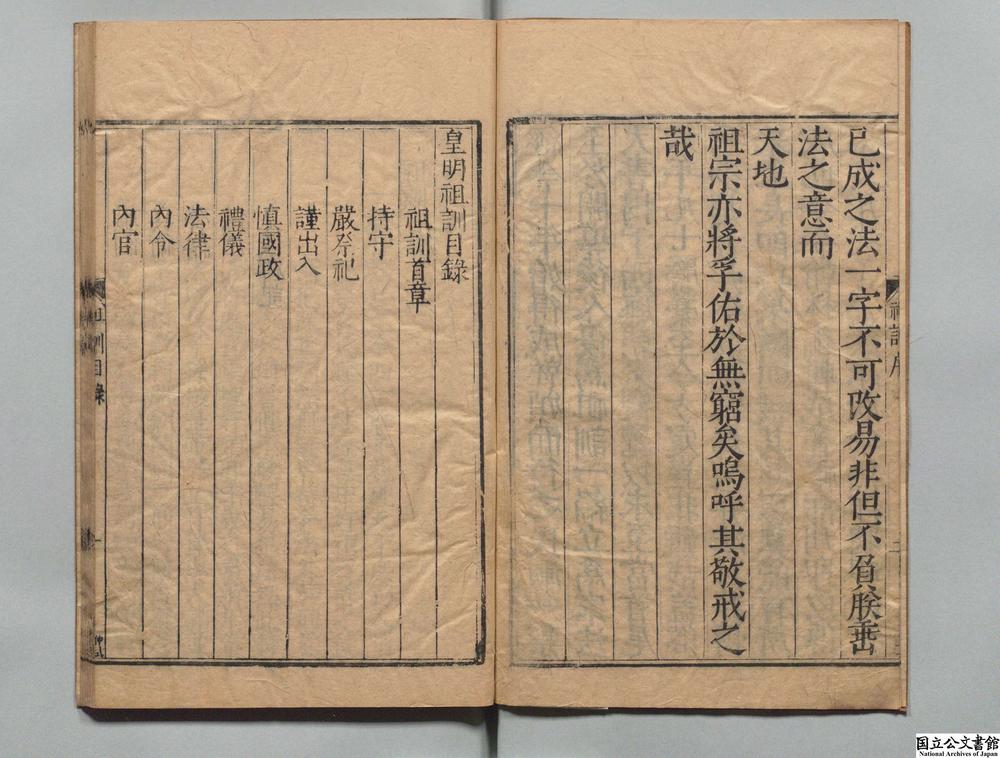 已成之法一字不可改易非但不負朕垂
法之意而
天地
祖宗亦將孚佑於無窮矣嗚呼其敬戒之
哉
祖訓序
皇明祖訓目錄
祖訓首章
持守
嚴祭祀
謹出入
慎國政
禮儀
法律
內令
內官
祖訓目錄
一
国立公文書館
National Archives of Japan